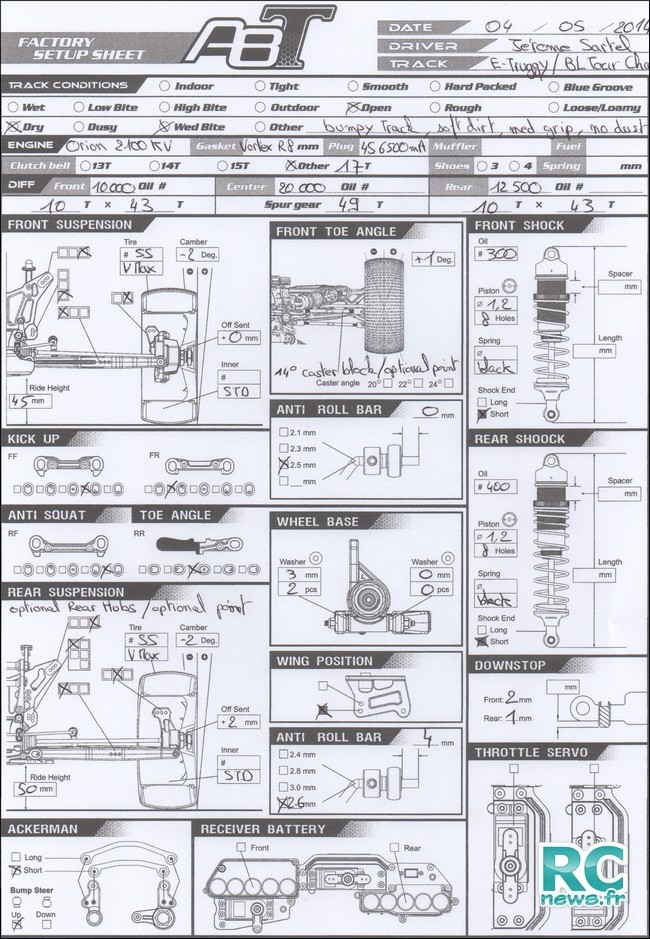 FACTORY SETUP SHEET
A8T
DATE 04 / 05 / 2014
DRIVER Jérome Sartel
TRACK E-Truggy / BL Tour Cha
TRACK CONDITIONS Indoor Tight Smooth Hard Packed Blue Groove
Wet Low Bite High Bite Outdoor Open Rough Loose/Loamy
Dry Dusy Wed Bite Other bumpy Track, soft dirt, med grip, no dust
ENGINE Orion 2100 KV Gasket Vortex R8 mm Plug 4S 6500mA Muffler Fuel
Clutch bell 13T 14T 15T Other 17T Shoes 3 4 Spring mm
DIFF Front 10000 Oil # Center 20 000 Oil # Rear 12 500 Oil #
10 T x 43 T Spur gear 49 T 10 T x 43 T
FRONT SUSPENSION
Tire
# SS
V Max
Camber
-2 Deg.
Off Sent
+ 0 mm
Inner
#
STD
Ride Height
45 mm
FRONT TOE ANGLE
+1 Deg.
14° caster block / optional point
Caster angle 20° 22° 24°
FRONT SHOCK
Oil
# 300
Piston
ø 1,2
8 Holes
Spring
black
Shock End
Long
Short
Spacer
mm
Length
mm
ANTI ROLL BAR 0 mm
2.1 mm
2.3 mm
2.5 mm
mm
KICK UP
FF FR
ANTI SQUAT TOE ANGLE
RF RR
WHEEL BASE
Washer Washer
3 mm 0 mm
2 pcs 0 pcs
REAR SHOOCK
Oil
# 400
Piston
ø 1,2
8 Holes
Spring
black
Shock End
Long
Short
Spacer
mm
Length
mm
REAR SUSPENSION
optional Rear Hubs / optional point
Tire
# SS
V Max
Camber
-2 Deg.
Off Sent
+ 2 mm
Inner
#
STD
Ride Height
50 mm
WING POSITION
ANTI ROLL BAR 4 mm
2.4 mm
2.8 mm
3.0 mm
2.6 mm
DOWNSTOP
mm
Front: 2 mm
Rear: 1 mm
THROTTLE SERVO
ACKERMAN
Long
Short
Bump Steer
Up Down
RECEIVER BATTERY
Front Rear
RC
news.fr